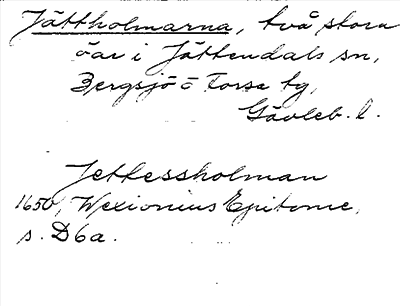 Jättholmarna, två stora
öar i Jättendals sn,
Bergsjö o Forsa tg,
Gävleb. l.
Jettessholman
1650, Wexionius Epitome,
s. D6a.